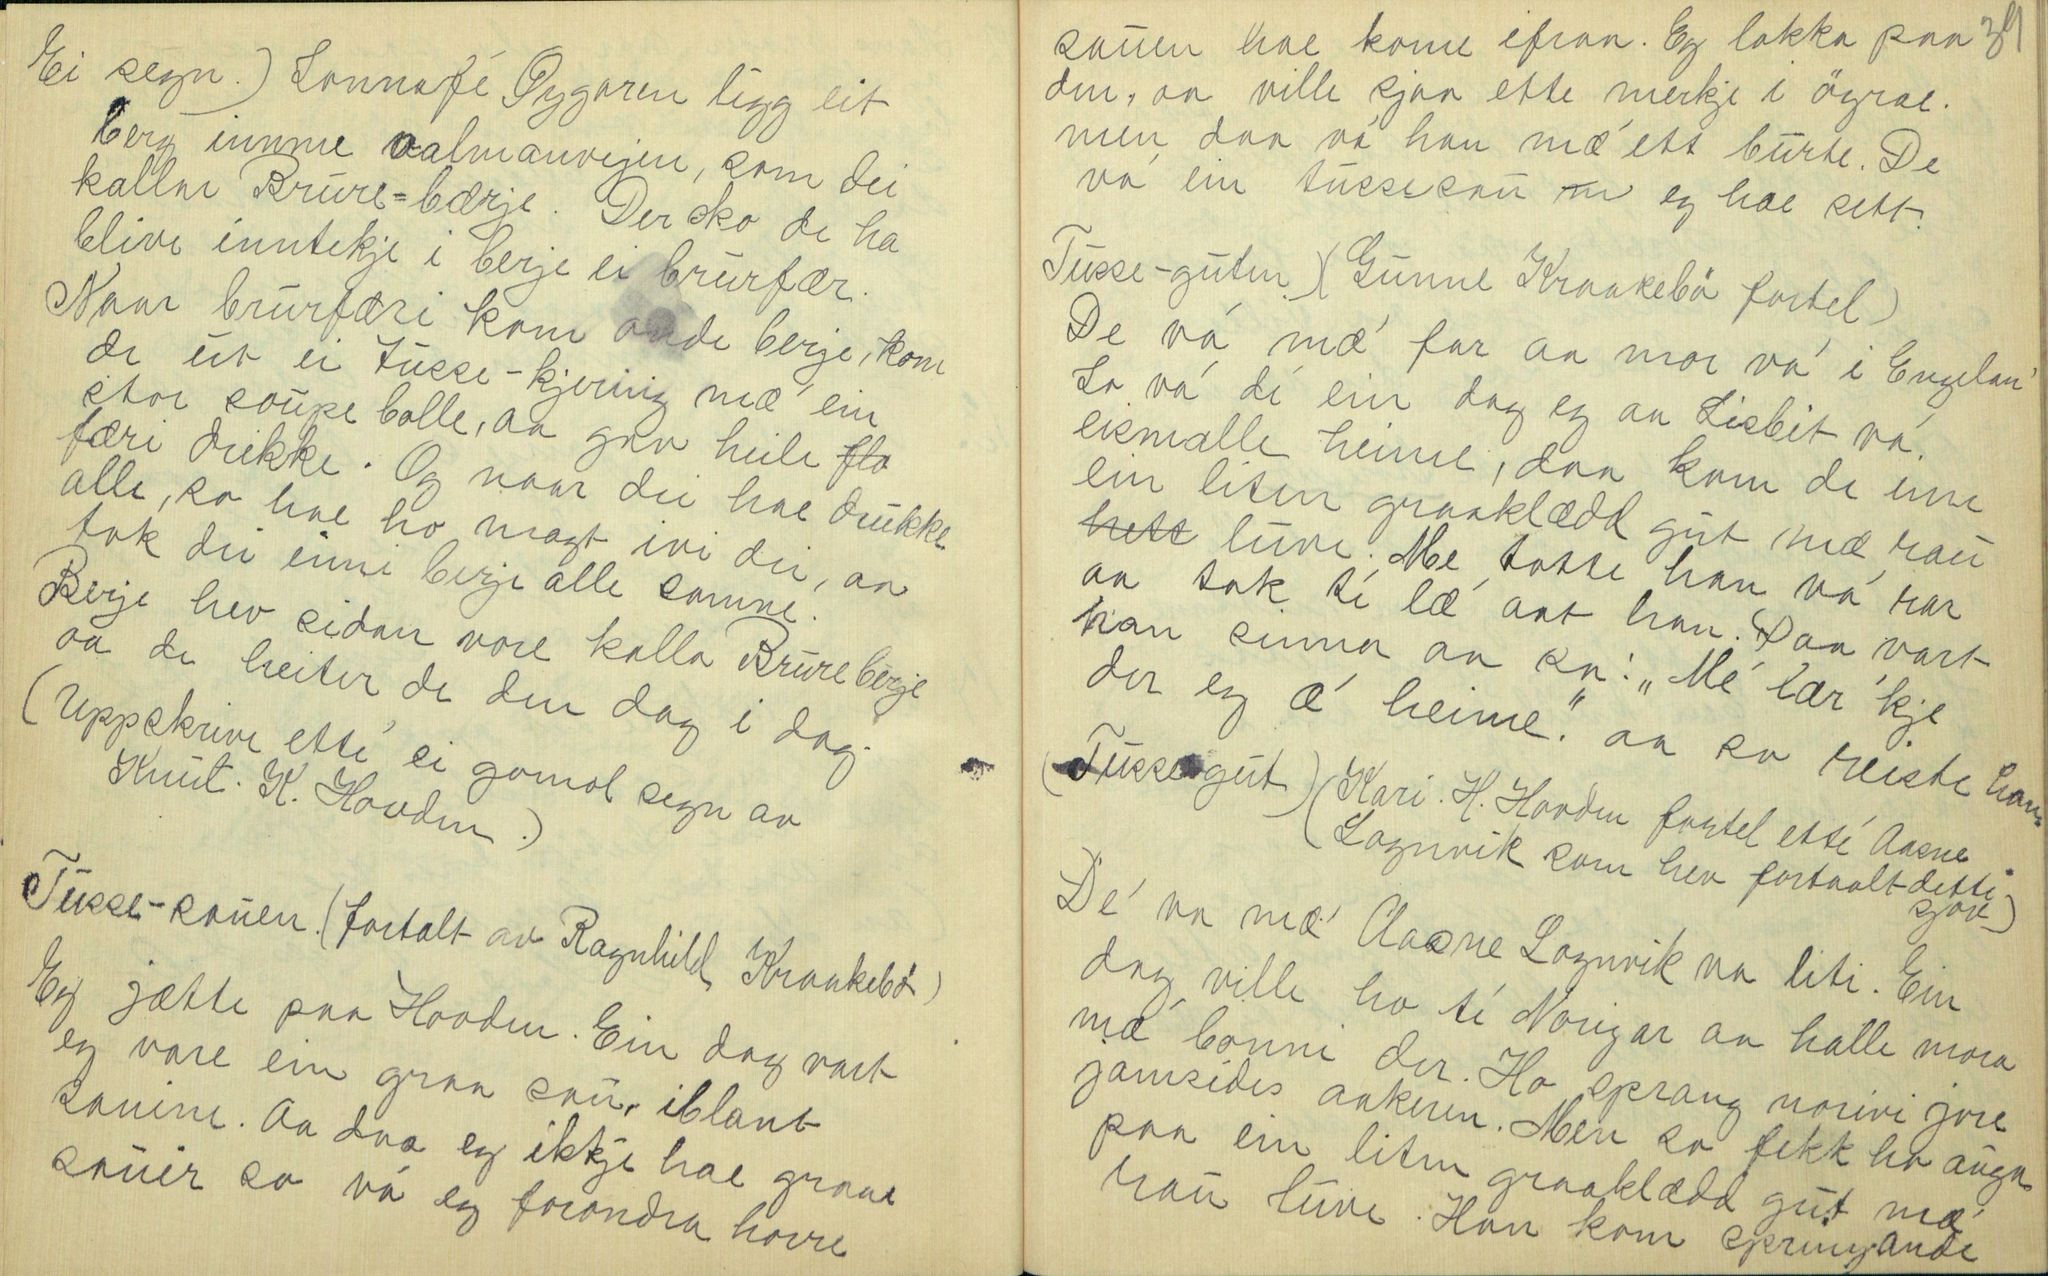 Ei segn.) Sonnafé Oygaren ligg eit
berg innme aalmannvejen, som dei
kallar Brure-bærje. Der sko de ha
blive inntekje i berje ei brurfær.
Naar brurfæri kom ande berje, kom
de ut ei tusse-kjering mæ' ein
stor soupe bolle, aa gav heile flo
færi drikke. Og naar dei hae drukke
alle, so hae ho magt ivi dei, aa
tok dei inni berje alle somne.
Berje hev sidan vore kalla Brureberje
aa de heiter de den dag i dag.
(Uppskrive etté ei gomol segn av
Knut. K. Hovden.)
Tusse-sauen. (fortalt av Ragnhild Kraakebö)
Eg jætte paa Hovden. Ein dag vart
eg vare ein graa sau, iblant
sauine. Aa daa eg ikkje hae graae
sauir so vá eg forandra hovre
34
sauen hae kome ifraa. Eg lokka paa
den, aa ville sjaa ette merkje i öyrae.
men daa vá han mæ' ett burte. De
vá ein tussesau eg hae sett.
Tusse-guten.) (Gunne Kraakebö fortel)
De vá mæ' far aa mor vá i Engelan'
So vá dí ein dag eg aa Lisbit vá
eismalle heime, daa kom de inn
ein liten graaklædd gut mæ rau
hett luve. Me totte han vá rar
aa tok té læ' aat han. Daa vart
han sinna aa sa: "Mé lær 'kje
der eg æ' heime." aa so reiste han
(Tusse gut) (Kari. H. Hovden fortel etté Aasne
Lognvik som hev fortaalt detti
sjov)
Dé va mæ' Aasne Lognvik va liti. Ein
dag ville ho té Norigar aa halle mora
mæ' bonni der. Ho sprang norivi jore
jamsides aakeren. Men so fekk ho auga
paa ein liten graaklædd gut mæ'
rau luve. Han kom springande